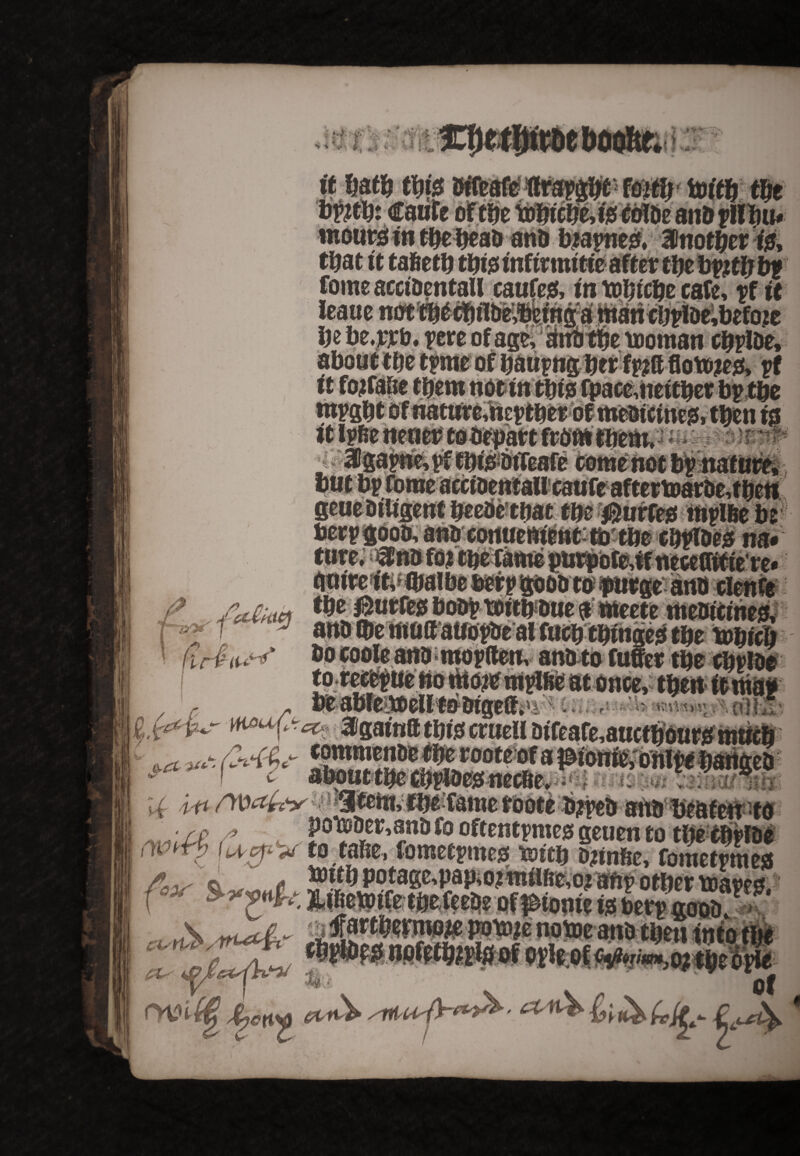 The thirde booke.
it hath this disease strayght forth with the
byrth: Cause of the whiche, is colde and yll hu-
mours in the head and braynes. Another is,
that it taketh this infirmitie after the byrth by
some accidentall causes, in whiche case, yf it
leaue not the childe, being a man chylde, before
he be.xxv. yere of age, and the woman chylde,
about the tyme of hauyng her fyrst flowres, yf
it forsake them not in this space, neither by the
myght of nature, neyther of medicines, then is
it lyke neuer to depart from them.
Agayne, yf this disease come not by nature,
but by some accidentall cause afterwarde, then
geue diligent heede that the Nurses mylke be
very good, and conuenient to the chyldes na-
ture. And for the same purpose, if necessitie re-
quire it, shalbe very good to purge and clense
the Nurses body with due & meete medicines,
and she must auoyde al such thinges the which
do coole and moysten, and to suffer the chylde
to receyue no more mylke at once, then it may
be able well to digest.
Against this cruell disease, aucthours much
commende the roote of a Pionie, onlye hanged
about the chyldes necke.
Item, the same roote dryed and beaten to
powder, and so oftentymes geuen to the chylde
to take, sometymes with drinke, sometymes
with potage, pap, or milke, or any other wayes.
Likewise the seede of Pionie is very good.
Farthermore powre nowe and then into the
chyldes nosethryls of oyle of or the oyle
of
with hony and